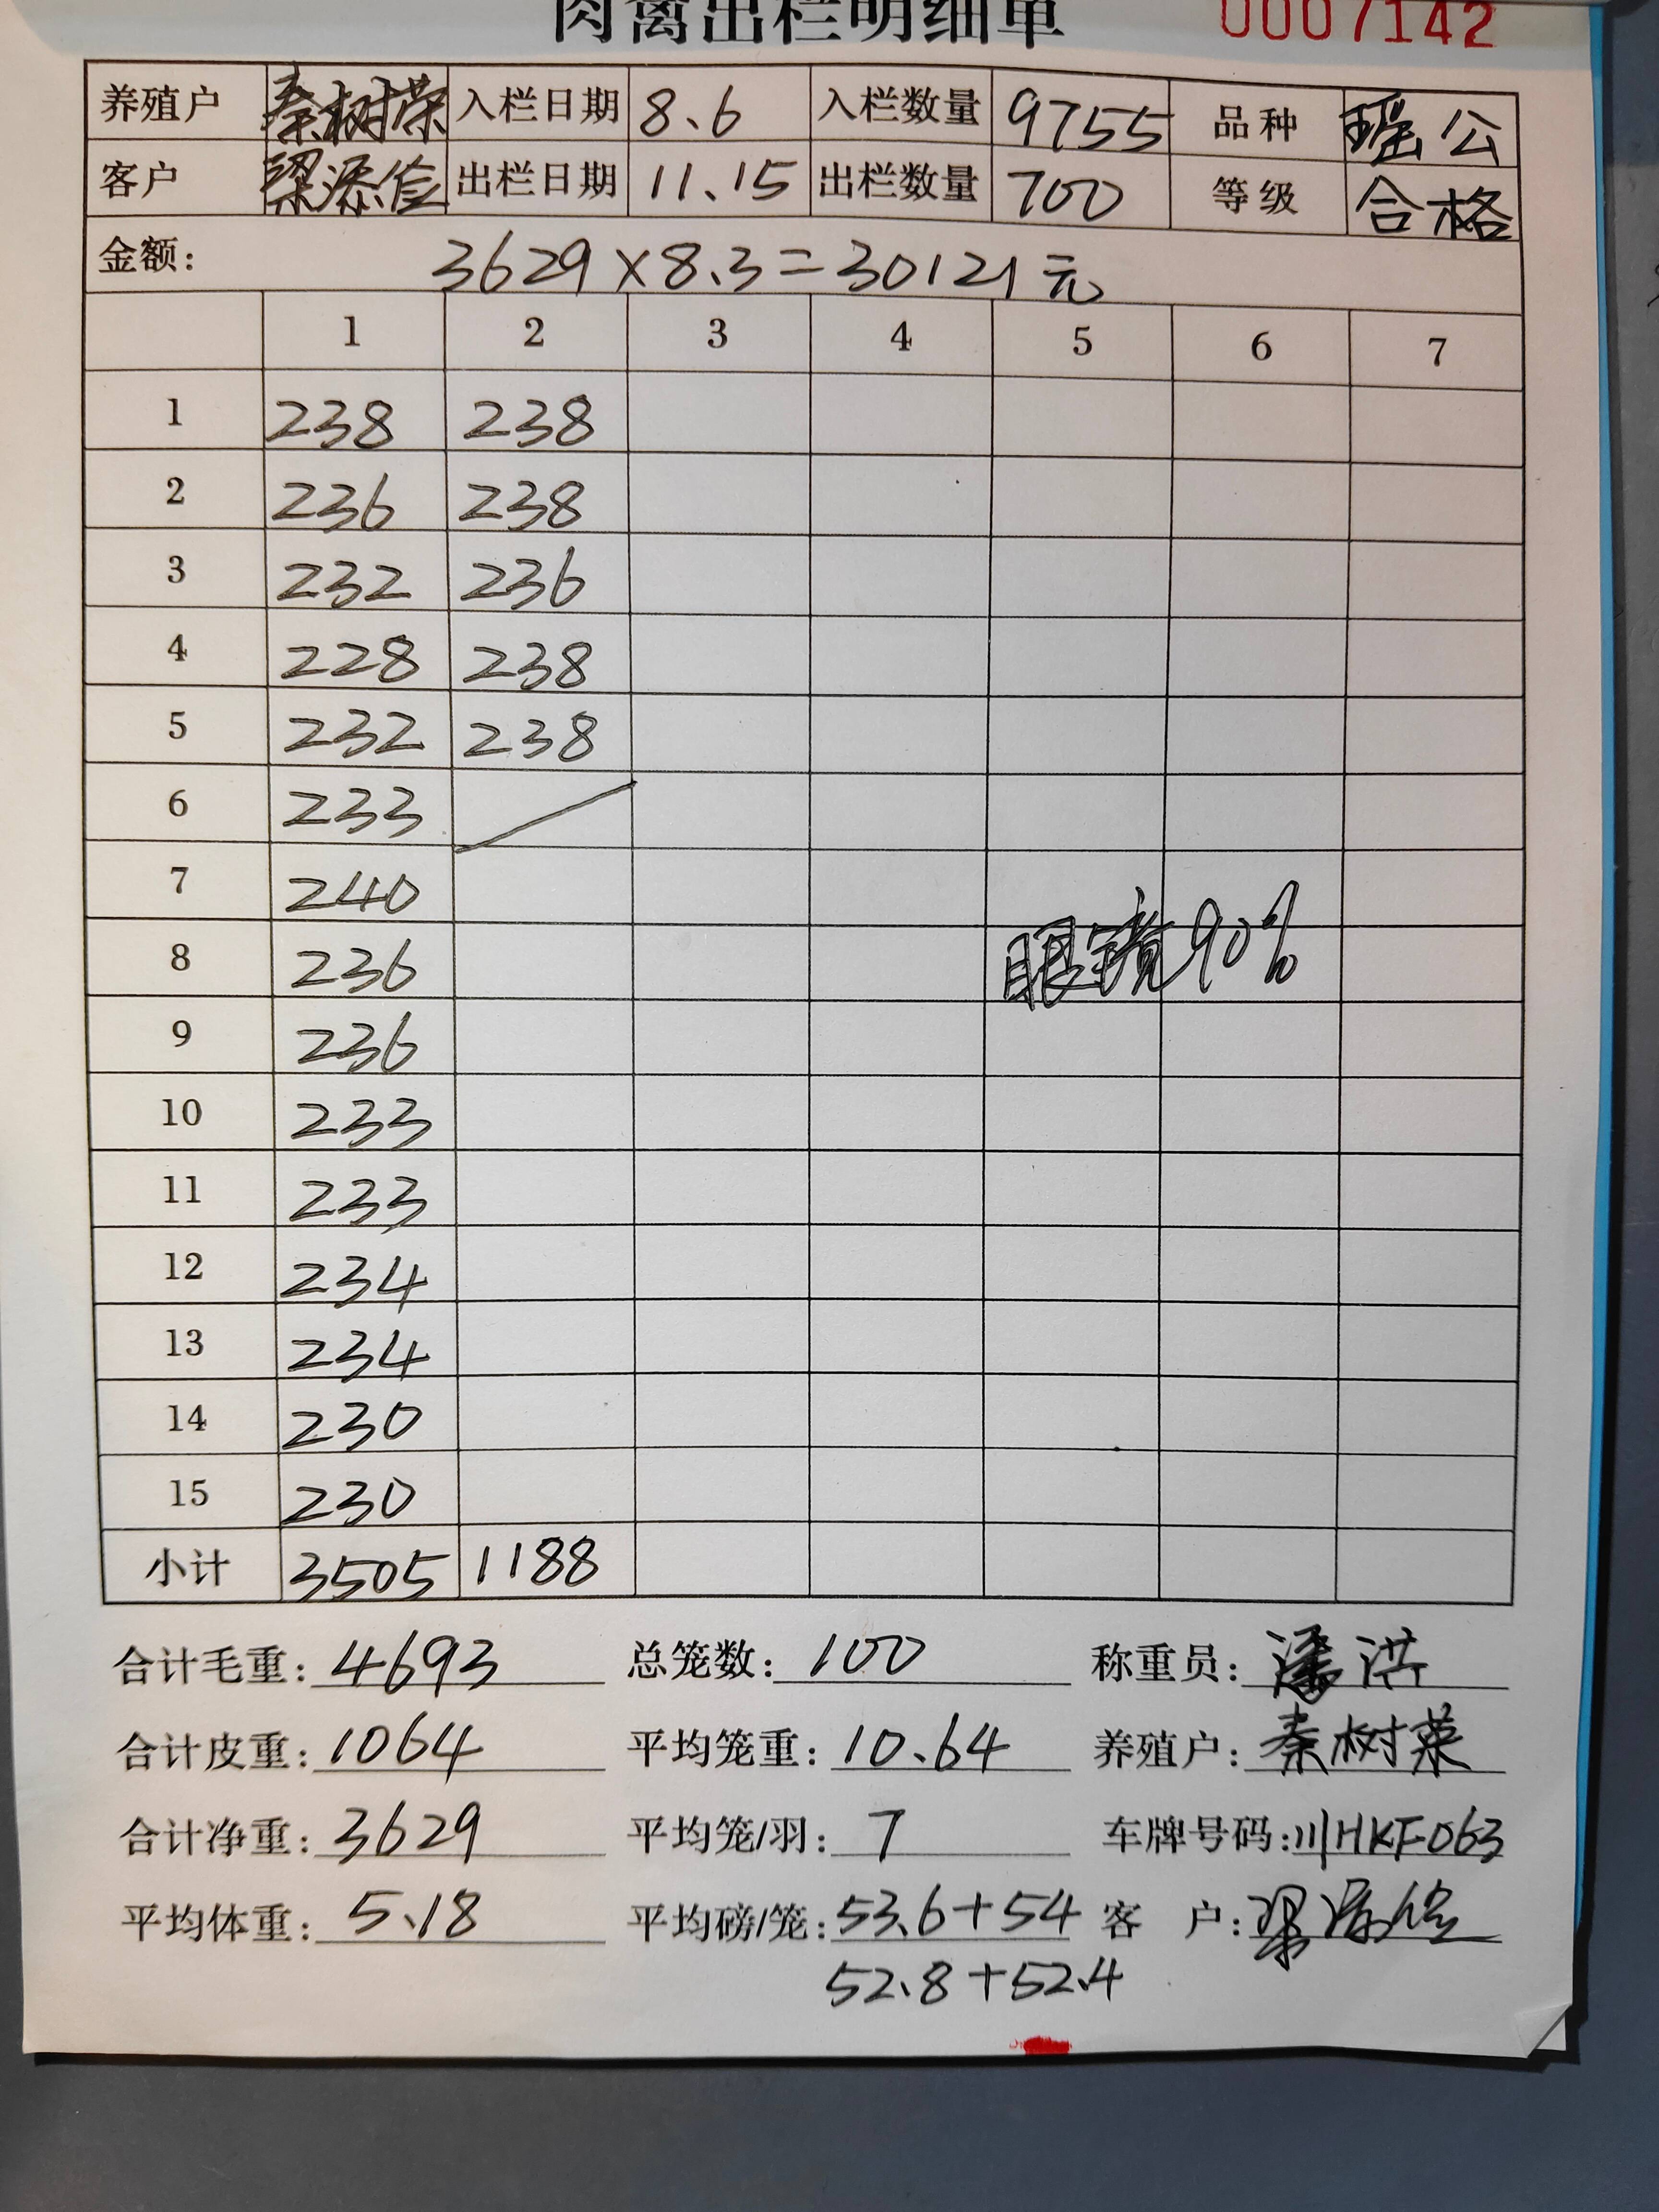 肉禽出栏明细单 0007142
养殖户 秦树荣 入栏日期 8.6 入栏数量 9755 品种 瑶公
客户 梁添俭 出栏日期 11.15 出栏数量 700 等级 合格
金额: 3629×8.3=30121元
1 2 3 4 5 6 7
1 238 238
2 236 238
3 232 236
4 228 238
5 232 238
6 233
7 240
8 236 眼镜90%
9 236
10 233
11 233
12 234
13 234
14 230
15 230
小计 3505 1188
合计毛重: 4693 总笼数: 100 称重员: 潘洪
合计皮重: 1064 平均笼重: 10.64 养殖户: 秦树荣
合计净重: 3629 平均笼/羽: 7 车牌号码: 川HKF063
平均体重: 5.18 平均磅/笼: 53.6+54 客 户:
52.8+52.4